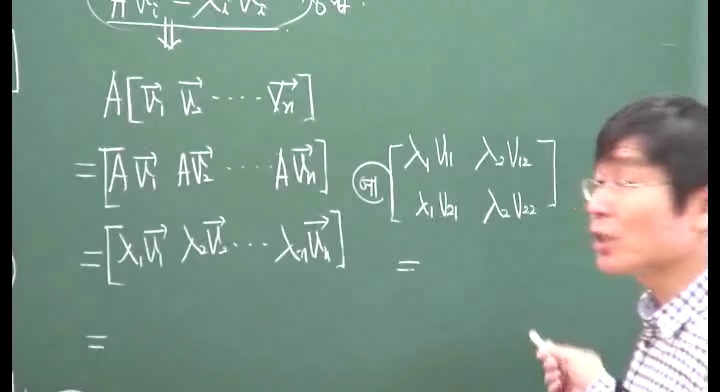 A v⃗ᵢ = λᵢ v⃗ᵢ
⇓
A[v⃗₁ v⃗₂ ⋯⋯ v⃗ₙ]
=[Av⃗₁ Av⃗₂ ⋯⋯ Av⃗ₙ]
=[λ₁v⃗₁ λ₂v⃗₂ ⋯ λₙv⃗ₙ]
=
예 [λ₁v₁₁ λ₂v₁₂
λ₁v₂₁ λ₂v₂₂]
=